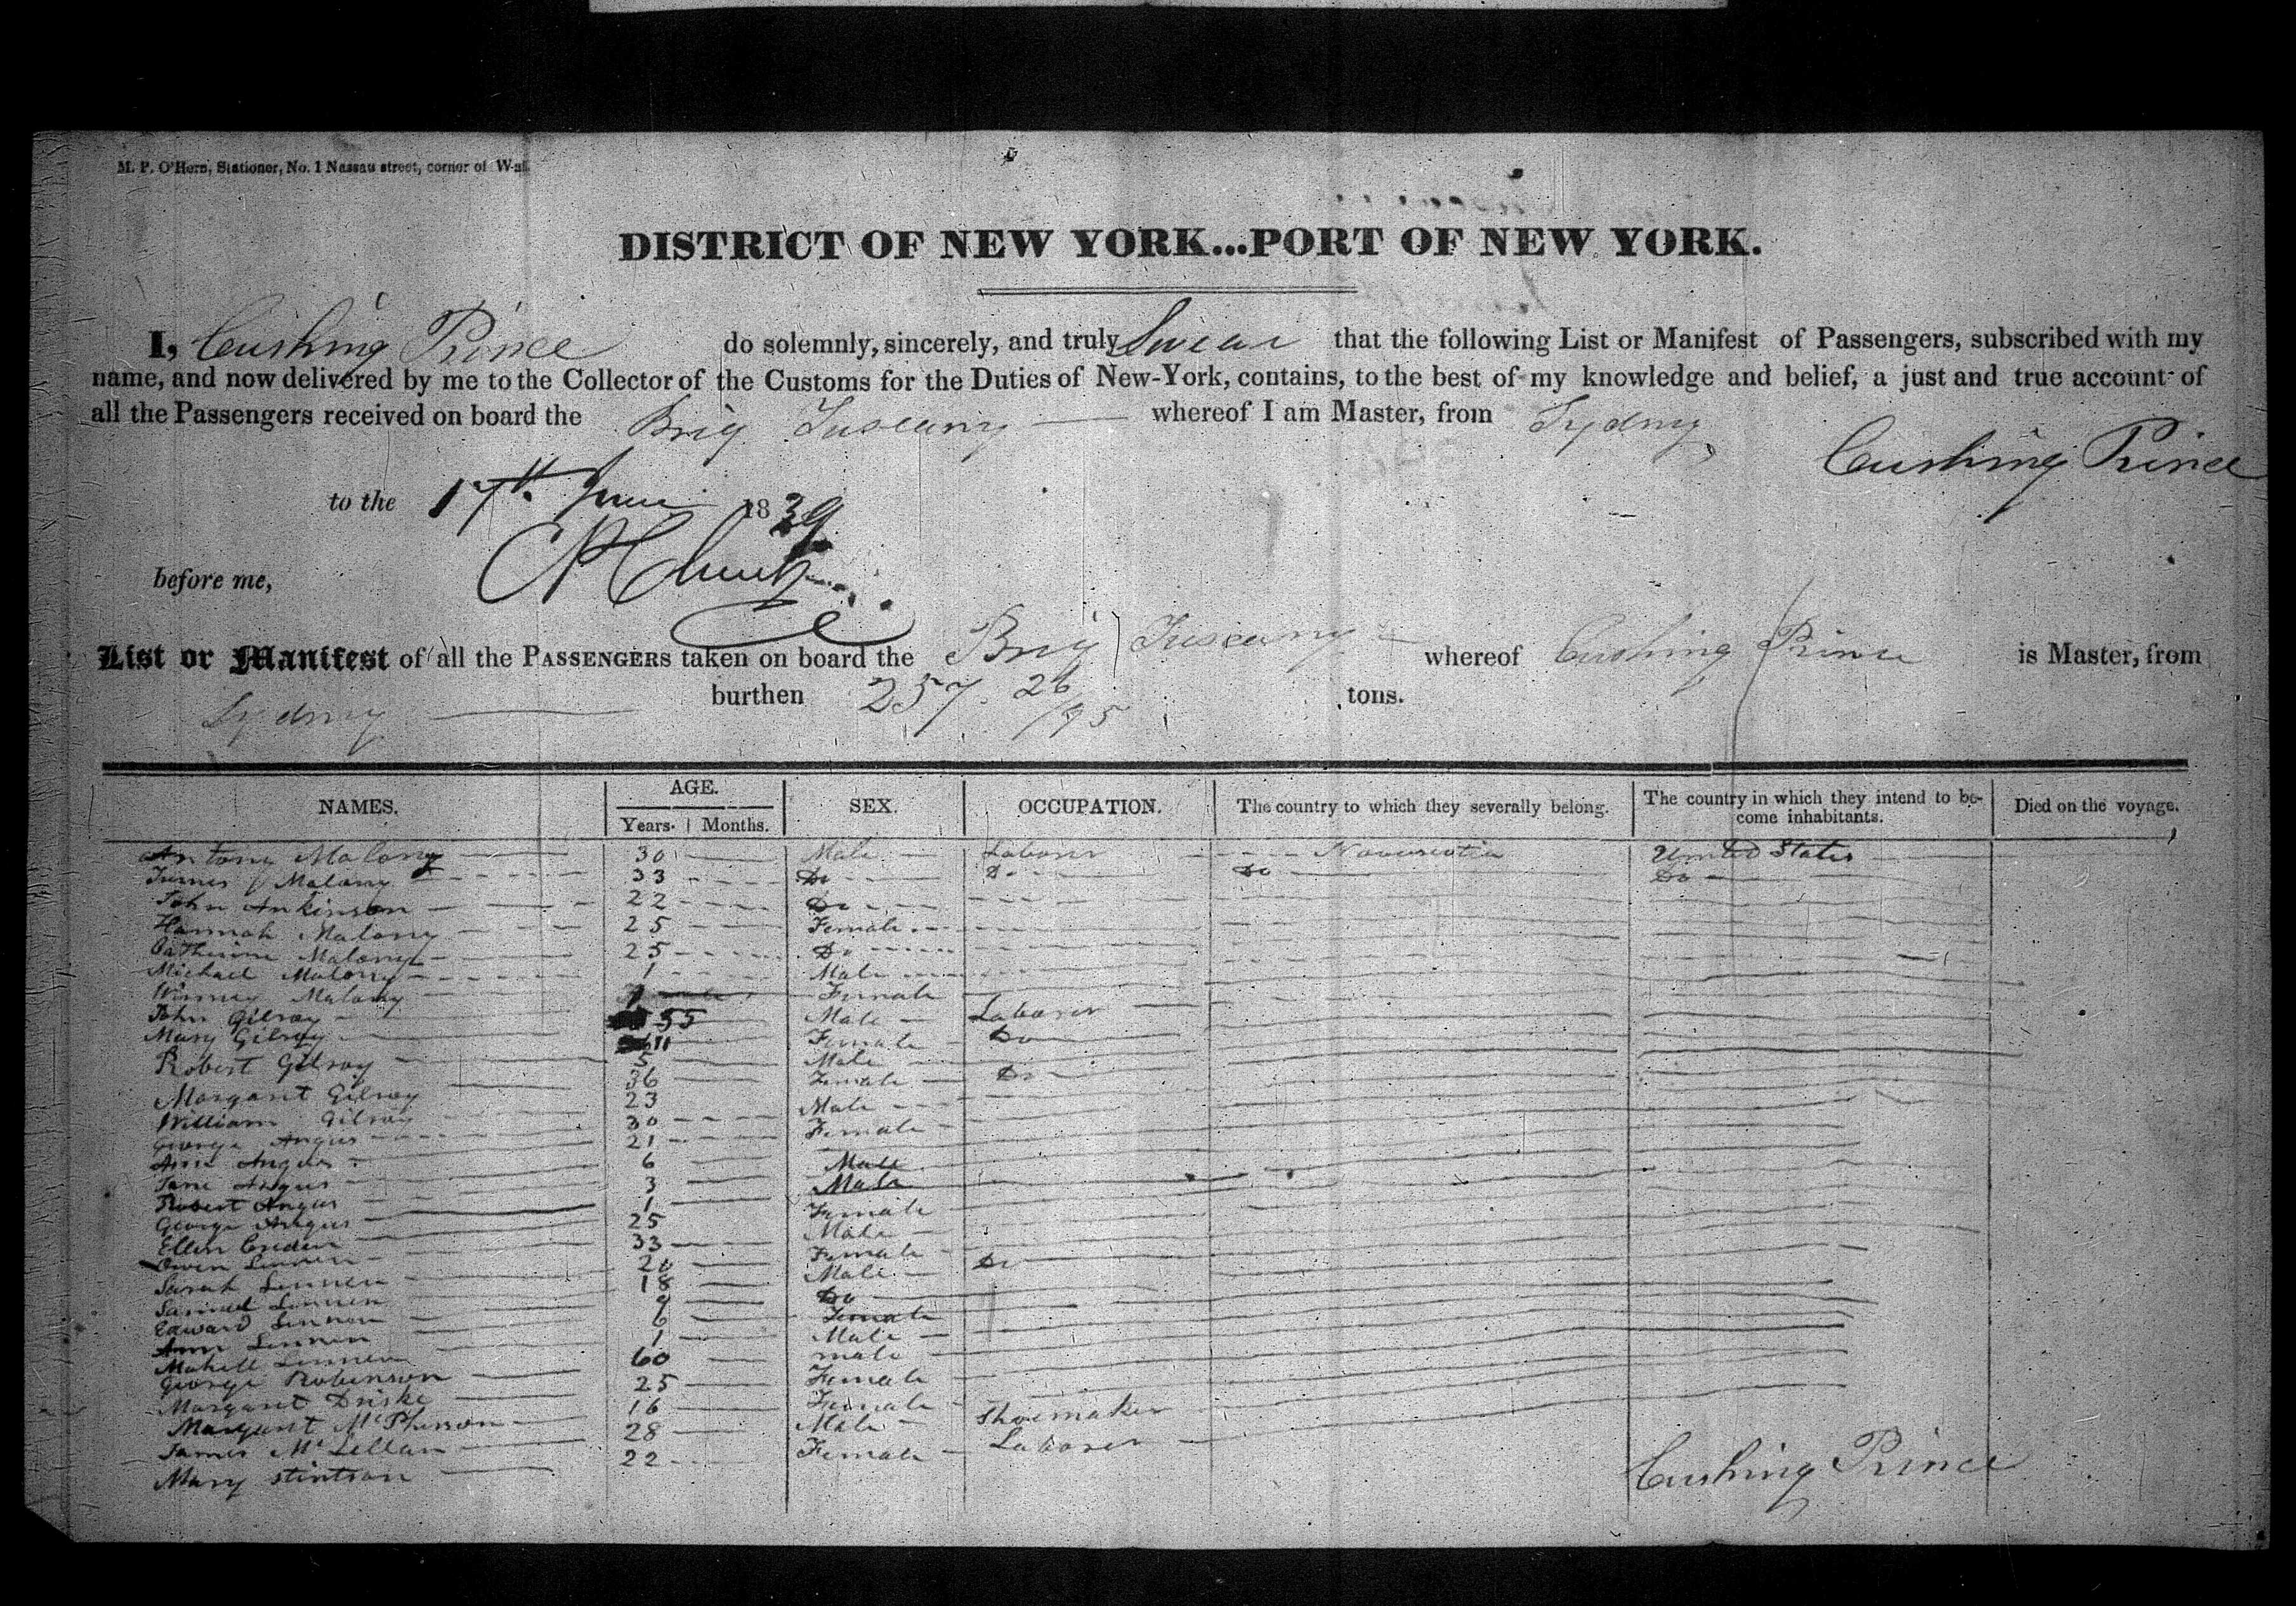 M. P. O'Hern, Stationer, No. 1 Nassau street, corner of Wall
DISTRICT OF NEW YORK...PORT OF NEW YORK.
I, Cushing Prince do solemnly, sincerely, and truly Swear that the following List or Manifest of Passengers, subscribed with my
name, and now delivered by me to the Collector of the Customs for the Duties of New-York, contains, to the best of my knowledge and belief, a just and true account of
all the Passengers received on board the Brig Tuscany whereof I am Master, from Sydny
Cushing Prince
to the 17th June 1839
before me,
List or Manifest of all the PASSENGERS taken on board the Brig Tuscany whereof Cushing Prince is Master, from
Sydny burthen 257 26/95 tons.
NAMES. AGE. Years. Months. SEX. OCCUPATION. The country to which they severally belong. The country in which they intend to become inhabitants. Died on the voyage.
Antony Malony 30 Male Laborer Novascotia United States
Malony 33 Do Do Do
John Ankinson 22 Do
Hannah Malony 25 Female
Catherine Malony 25 Do
Michael Malony 1 Male
Winney Malony 1 Female
John Gilroy 55 Male Laborer
Mary Gilroy Female Do
Robert Gilroy 5 Male
Margaret Gilroy 36 Female Do
William Gilroy 23 Male
George Angus 30 Female
Ann Angus 21
Jane Angus 6 Male
Robert Angus 3 Male
George Angus 1 Female
Ellen 25 Male
Owen Linnen 33 Female
Sarah Linnen 20 Male Do
Samuel Linnen 18 Do
Edward Linnen 9 Female
Ann Linnen 6 Male
Linnen 1 male
George Robinson 60 Female
Margaret Driske 25 Female
Margaret McPherson 16 Male Shoemaker
James McLellan 28 Female Laborer
Mary Stintson 22
Cushing Prince